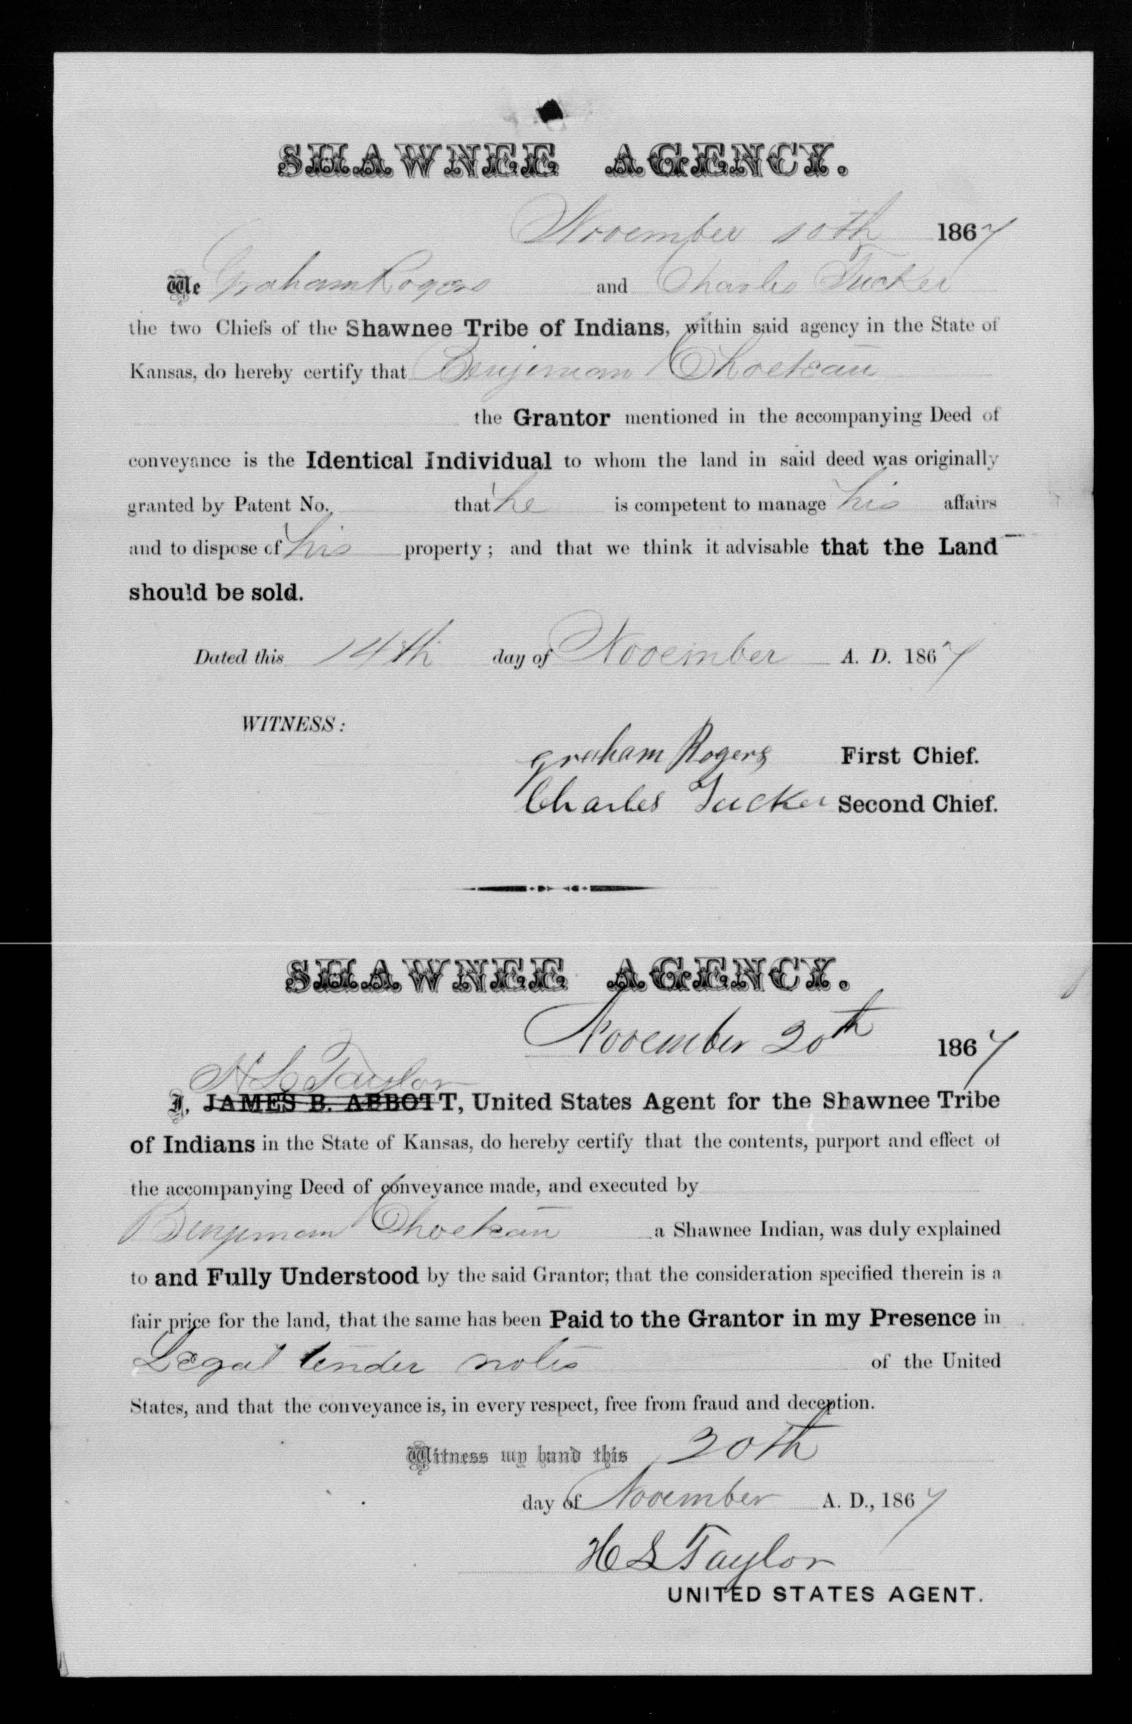 SHAWNEE AGENCY.
November 10th 1867
We Graham Rogers and Charles Tucker
the two Chiefs of the Shawnee Tribe of Indians, within said agency in the State of
Kansas, do hereby certify that Benjimam Choeteau
the Grantor mentioned in the accompanying Deed of
conveyance is the Identical Individual to whom the land in said deed was originally
granted by Patent No. that he is competent to manage his affairs
and to dispose of his property; and that we think it advisable that the Land
should be sold.
Dated this 14th day of November A. D. 1867
WITNESS:
Graham Rogers First Chief.
Charles Tucker Second Chief.
SHAWNEE AGENCY.
November 20th 1867
H L Taylor
I, JAMES B. ABBOTT, United States Agent for the Shawnee Tribe
of Indians in the State of Kansas, do hereby certify that the contents, purport and effect of
the accompanying Deed of conveyance made, and executed by
Benjimam Choeteau a Shawnee Indian, was duly explained
to and Fully Understood by the said Grantor; that the consideration specified therein is a
fair price for the land, that the same has been Paid to the Grantor in my Presence in
Legal tender notes of the United
States, and that the conveyance is, in every respect, free from fraud and deception.
Witness my hand this 20th
day of November A. D., 1867
H L Taylor
UNITED STATES AGENT.